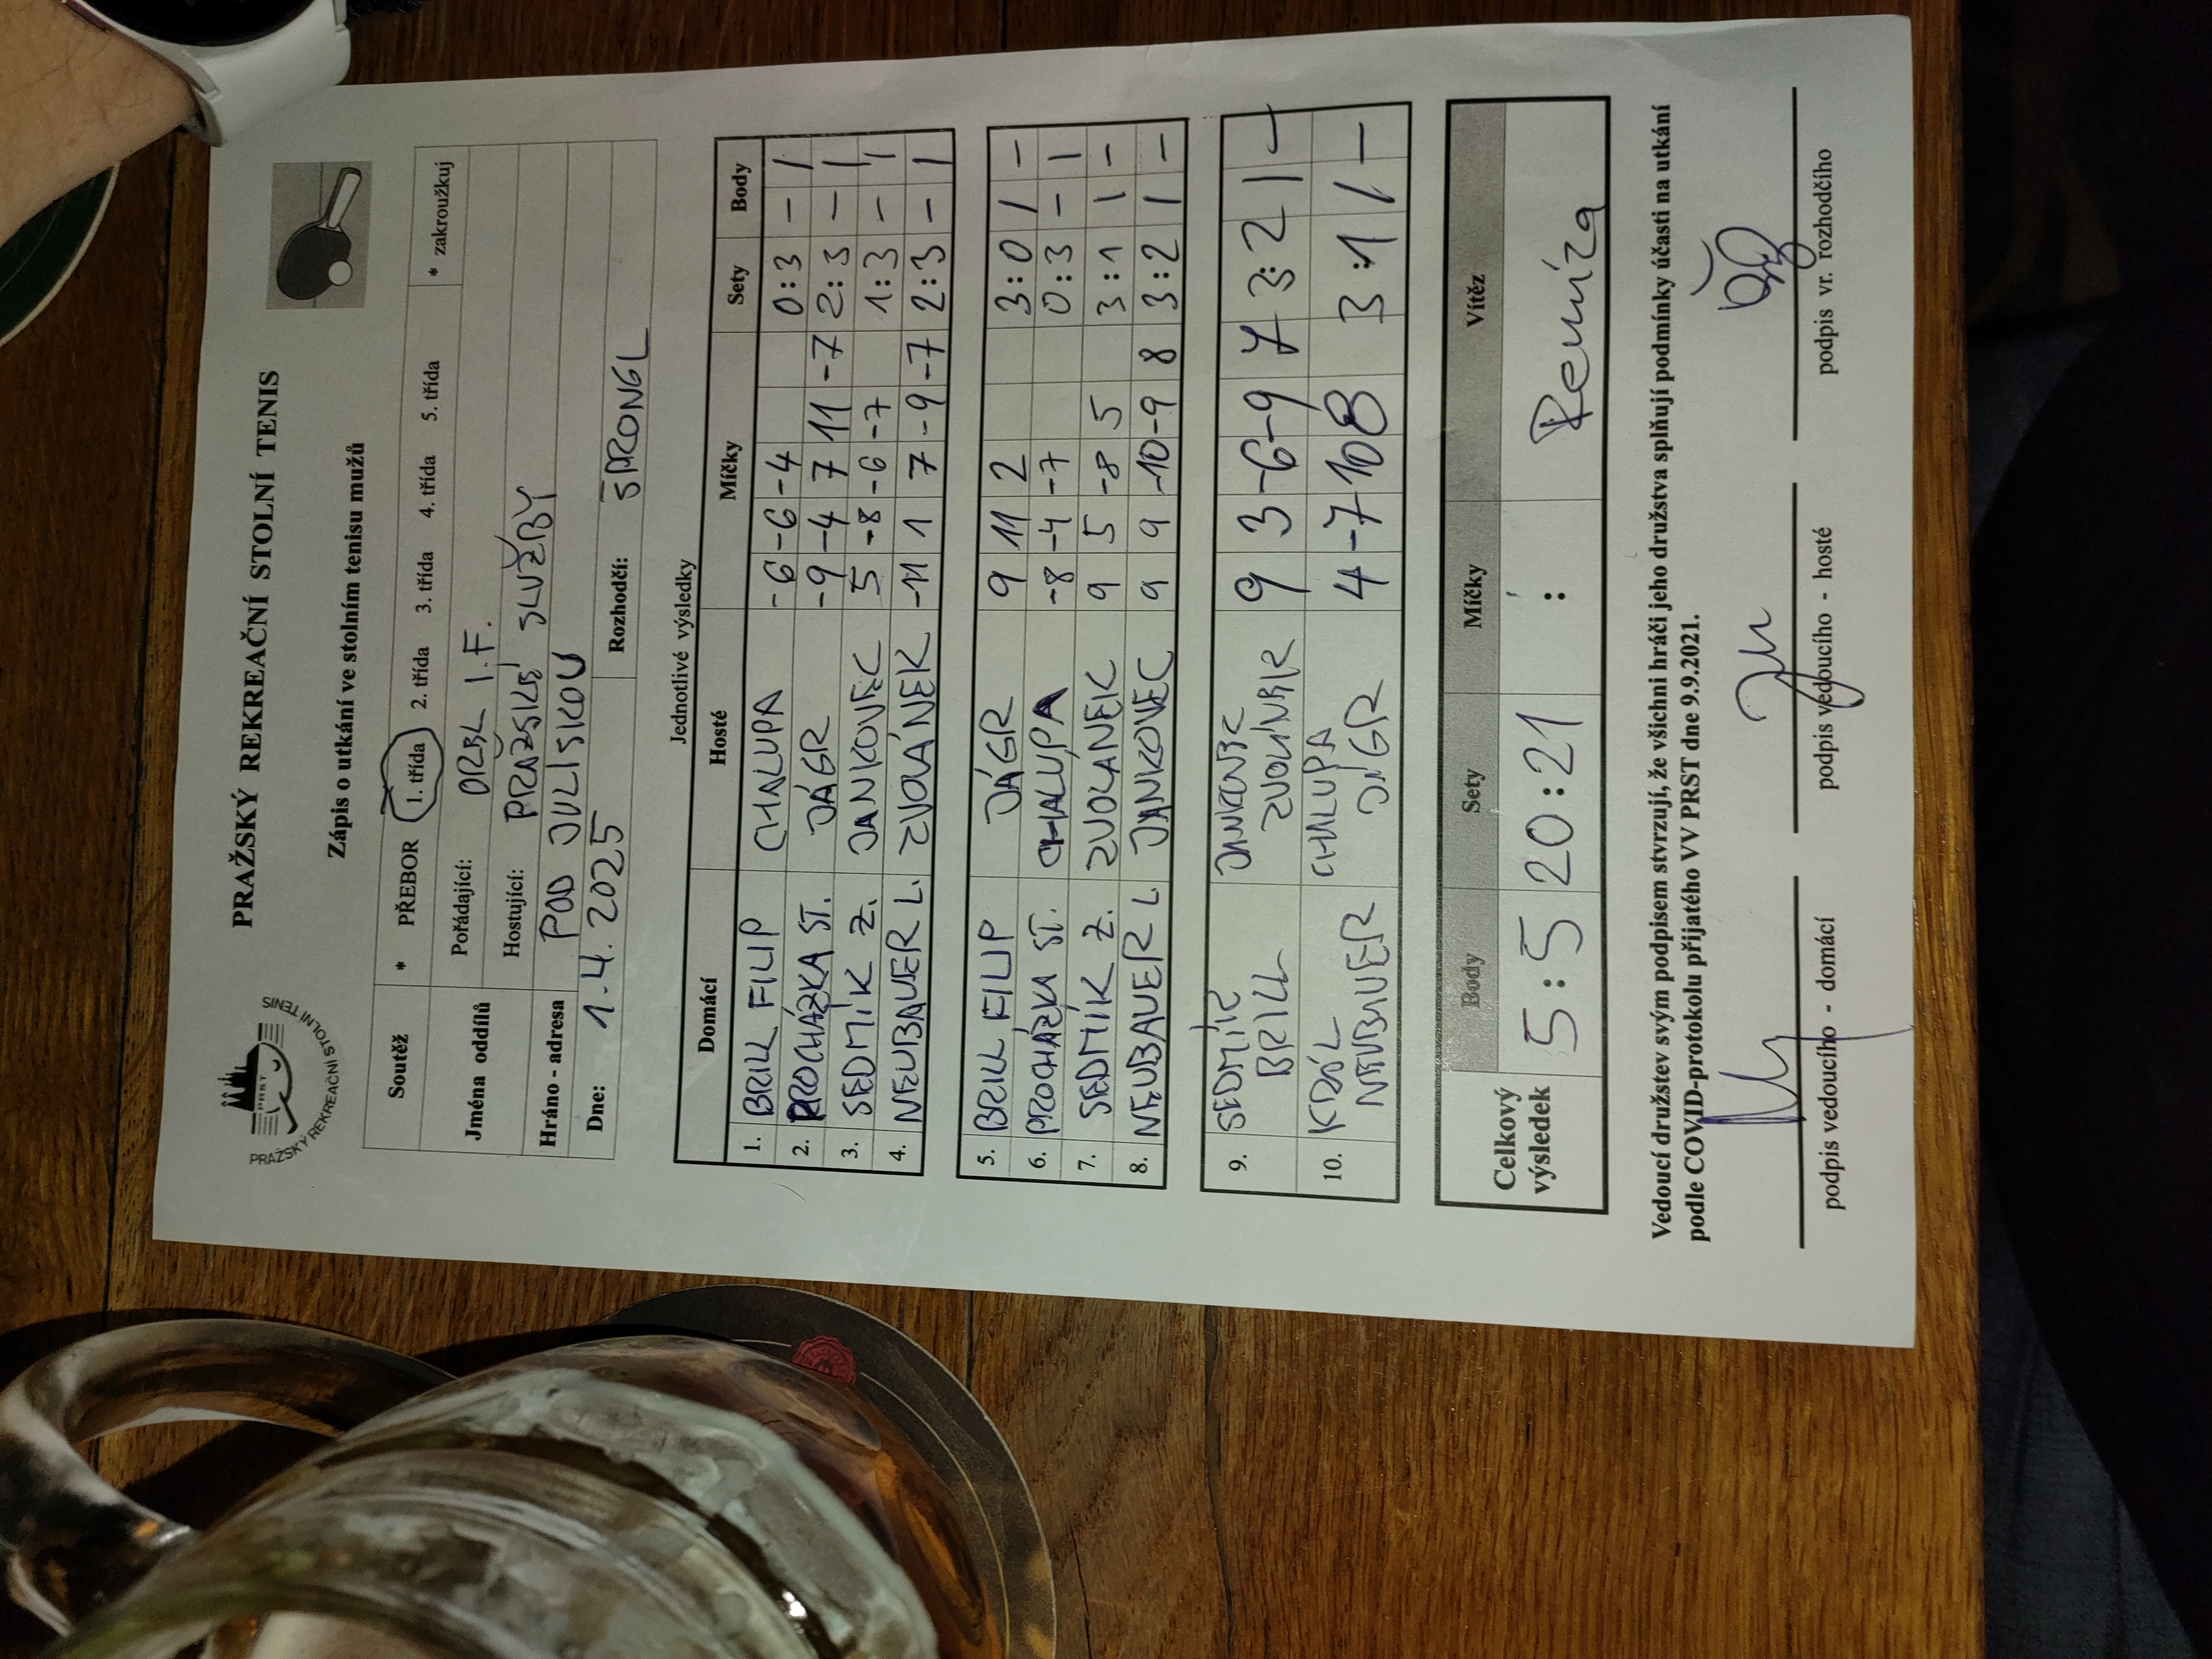 PRAŽSKÝ REKREAČNÍ STOLNÍ TENIS
PRST
PRAŽSKÝ REKREAČNÍ STOLNÍ TENIS
Zápis o utkání ve stolním tenisu mužů
Soutěž * PŘEBOR 1. třída 2. třída 3. třída 4. třída 5. třída * zakroužkuj
Jména oddílů Pořádající: ORBL I.F.
Hostující: PRAŽSKÉ SLUŽBY
Hráno - adresa POD JULISKOU
Dne: 1.4.2025 Rozhodčí: ŠPRONGL
Jednotlivé výsledky
Domácí Hosté Míčky Sety Body
1. BRILL FILIP CHALUPA -6 -6 -4 0:3 - 1
2. PROCHÁZKA ST. JÁGR -9 -4 7 11 -7 2:3 - 1
3. SEDMÍK Z. JANKOVEC 5 -8 -6 -7 1:3 - 1
4. NEUBAUER L. ZVOLÁNEK -11 1 7 -9 -7 2:3 - 1
5. BRILL FILIP JÁGR 9 11 2 3:0 1 -
6. PROCHÁZKA ST. CHALUPA -8 -4 -7 0:3 - 1
7. SEDMÍK Z. ZVOLANEK 9 5 -8 5 3:1 1 -
8. NEUBAUER L. JANKOVEC 9 9 -10 -9 8 3:2 1 -
9. SEDMÍK JANKOVEC 9 3 -6 -9 7 3:2 1 -
BRILL ZVOLÁNEK
10. KRÁL CHALUPA 4 -7 10 8 3:1 1 -
NEUBAUER JÁGR
Celkový výsledek Body Sety Míčky Vítěz
5:5 20:21 : Remíza
Vedoucí družstev svým podpisem stvrzují, že všichni hráči jeho družstva splňují podmínky účasti na utkání
podle COVID-protokolu přijatého VV PRST dne 9.9.2021.
podpis vedoucího - domácí podpis vedoucího - hosté podpis vr. rozhodčího